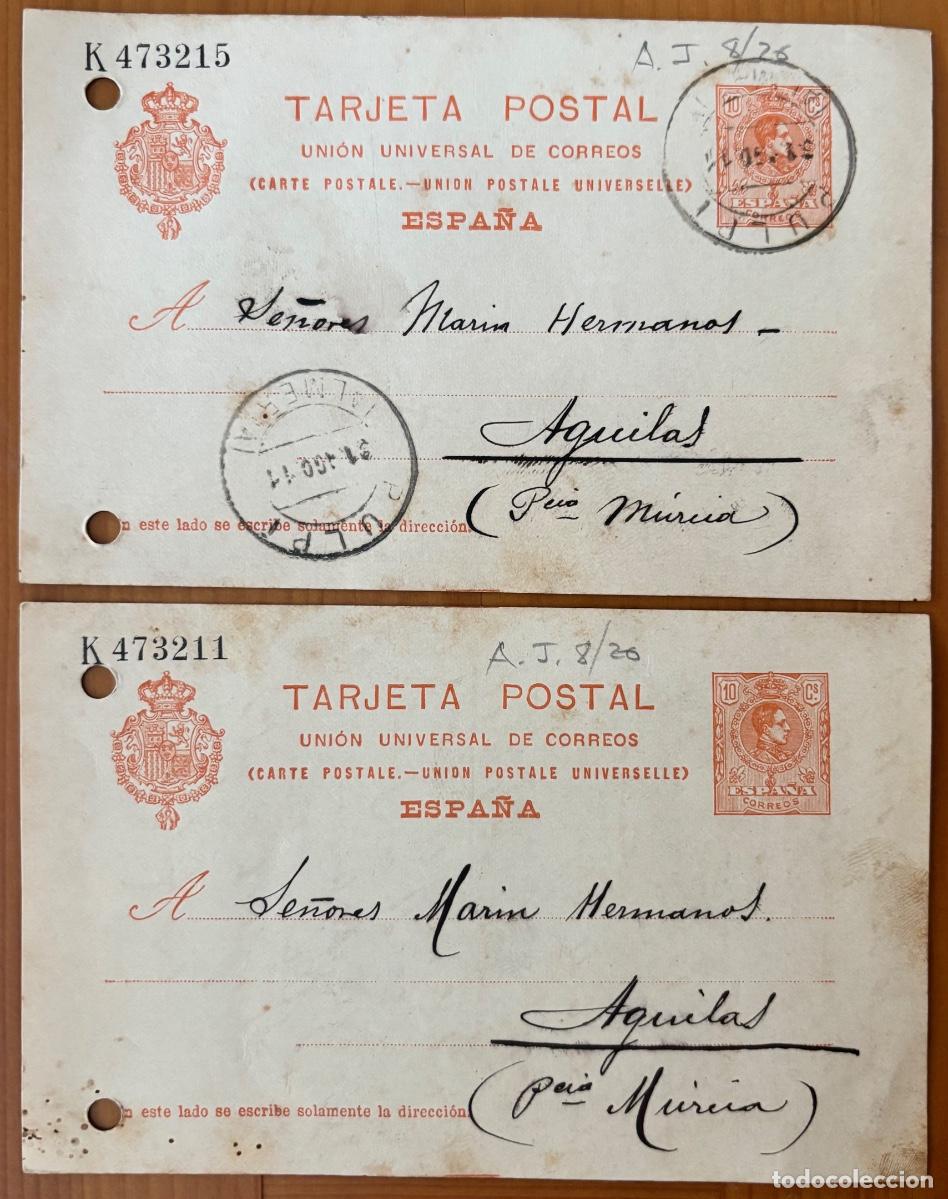 K 473215
A. J. 8/26
TARJETA POSTAL
10 Cs
UNIÓN UNIVERSAL DE CORREOS
(CARTE POSTALE.—UNION POSTALE UNIVERSELLE)
ESPAÑA
ESPAÑA
CORREOS
PULPI
A Señores Marin Hermanos -
(ALMERIA)
31 AGO 11
PULPI
Aguilas
(Pcia Múrcia)
n este lado se escribe solamente la dirección.
K 473211
A. J. 8/26
TARJETA POSTAL
10 Cs
UNIÓN UNIVERSAL DE CORREOS
(CARTE POSTALE.—UNION POSTALE UNIVERSELLE)
ESPAÑA
ESPAÑA
CORREOS
A Señores Marin Hermanos.
Aguilas
(Pcia Múrcia)
n este lado se escribe solamente la dirección.
todocoleccion